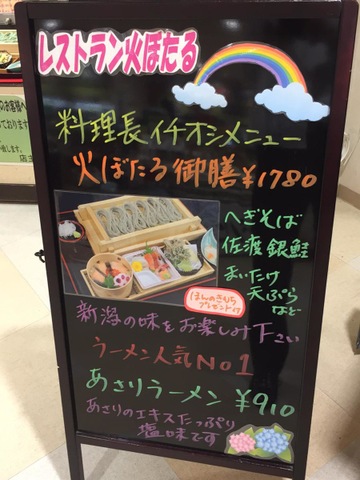 レストラン火ぼたる
料理長イチオシメニュー
火ぼたる御膳¥1780
へぎそば
佐渡銀鮭
まいたけ
天ぷら
など
ほんのきもち
プレゼント付
新潟の味をお楽しみ下さい
ラーメン人気No1
あさりラーメン ¥910
あさりのエキスたっぷり
塩味です